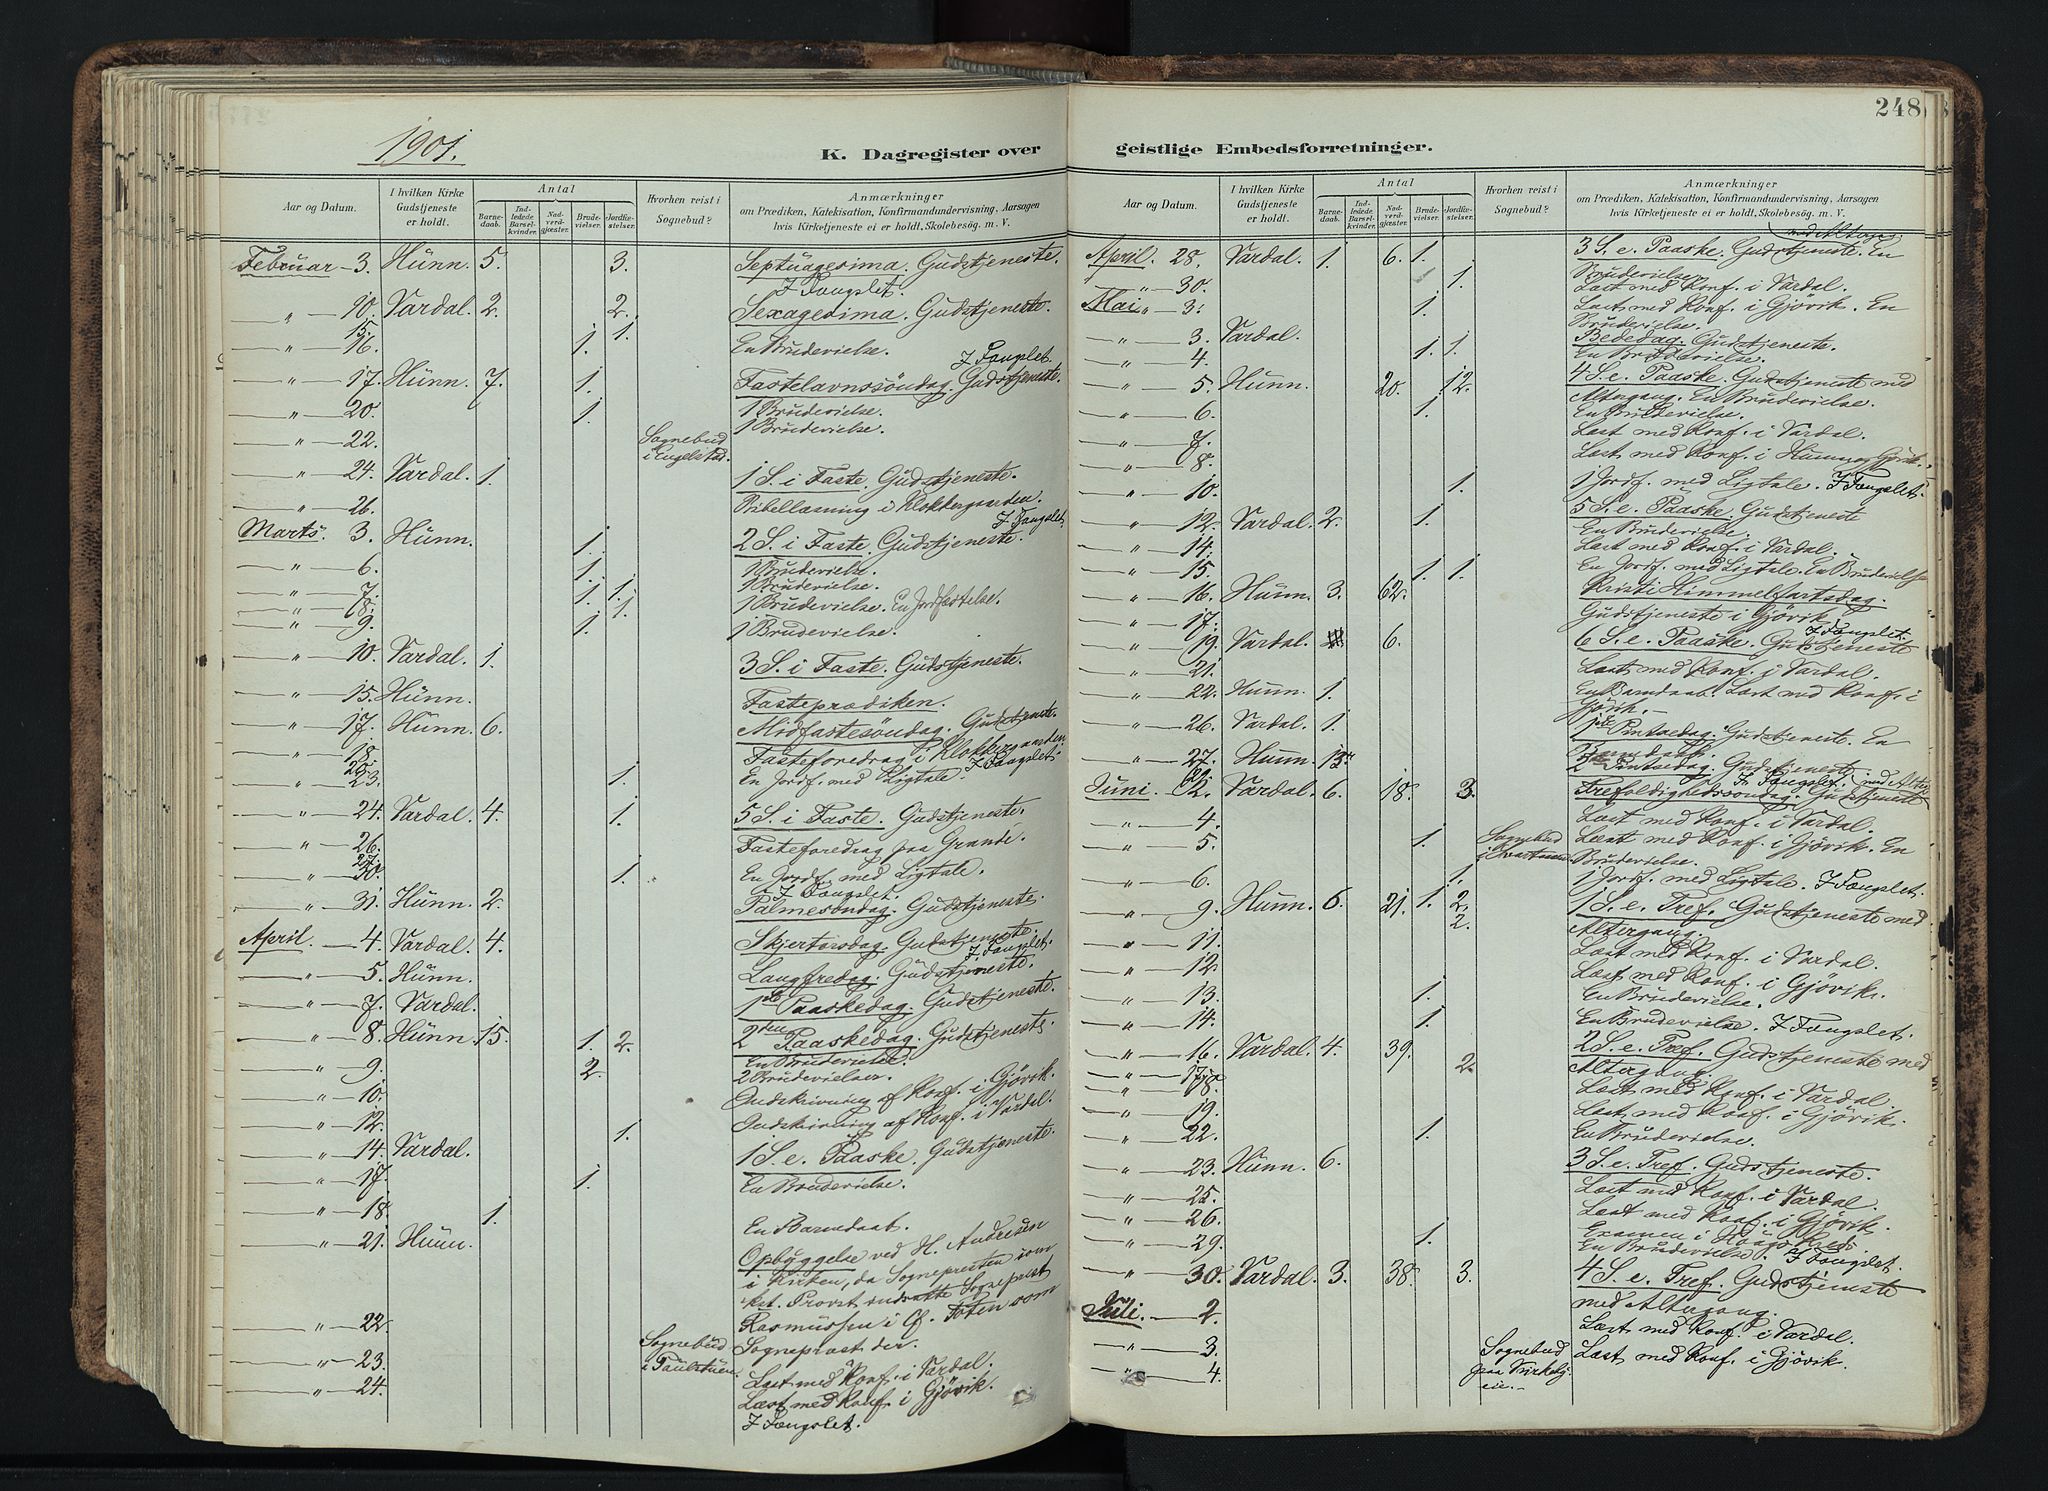 248
1901.
K. Dagregister over
geistlige Embedsforretninger.
Aar og Datum.
I hvilken Kirke Gudstjeneste er holdt.
Antal
Barnedaab.
Indledede Barselkvinder.
Nadverdgjæster.
Brudevielser.
Jordfæstelser.
Hvorhen reist i Sognebud?
Anmærkninger
om Prædiken, Katekisation, Konfirmandundervisning, Aarsagen
hvis Kirketjeneste ei er holdt, Skolebesøg. m. V.
Februar 3. Hunn. 5. 3. Septuagesima. Gudstjeneste.
I Fængslet.
" 10. Vardal. 2. 2. Sexagesima. Gudstjeneste.
" 15. 1.
" 16. 1. En Brudevielse.
I Fængslet.
" 17. Hunn. 7. 1. Fastelavnssöndag. Gudstjeneste.
" 20. 1. 1 Brudevielse.
1 Brudevielse.
" 22. Sognebud i Engelstad.
" 24. Vardal. 1. 1 S. i Faste. Gudstjeneste.
" 26. Bibellæsning i Klokkergaarden.
I Fængslet
Marts 3. Hunn. 1. 2 S. i Faste. Gudstjeneste.
" 6. 1. 1 Brudevielse.
" 7. 1. 1. 1 Brudevielse.
" 8. 1. 1 Brudevielse. En Jordfæstelse.
" 9. 1. 1 Brudevielse.
" 10. Vardal. 1. 3 S. i Faste. Gudstjeneste.
" 15. Hunn. Fasteprædiken.
" 17. Hunn. 6. Midfastesöndag. Gudstjeneste.
" 18. Fasteforedrag i Klokkergaarden
I Fængslet
" 23. 1. En Jordf. med Ligtale.
" 24. Vardal. 4. 1. 5 S. i Faste. Gudstjeneste.
" 26. Fasteforedrag paa Grande.
27.
" 30. 1. En Jordf. med Ligtale.
I Fængslet.
" 31. Hunn. 2. Palmesöndag. Gudstjeneste.
April. 4. Vardal. 4. Skjertorsdag. Gudstjeneste.
I Fængslet.
" 5. Hunn. Langfredag. Gudstjeneste.
" 7. Vardal. 1ste Paaskedag. Gudstjeneste.
" 8. Hunn. 15. 1. 2. 2den Paaskedag. Gudstjeneste.
En Brudevielse.
" 9. 2. 2 Brudevielser.
" 10. Indskrivning af Konf. i Gjövik.
" 12. 1. Indskrivning af Konf. i Vardal.
" 14. Vardal. 1 S. e. Paaske. Gudstjeneste.
" 17. 1. En Brudevielse.
" 18. 1. En Barnedaab.
" 21. Hunn. Opbyggelse ved H. Andresen
i Kirken, da Sognepresten som
kst. Provst indsatte Sogneprest
Rasmussen i Ö. Toten som
" 22. Sognebud i Paulstuen. Sogneprest der.
" 23. Læst med Konf. i Vardal.
" 24. Læst med Konf. i Gjövik.
I Fængslet.
Aar og Datum.
I hvilken Kirke Gudstjeneste er holdt.
Antal
Barnedaab.
Indledede Barselkvinder.
Nadverdgjæster.
Brudevielser.
Jordfæstelser.
Hvorhen reist i Sognebud?
Anmærkninger
om Prædiken, Katekisation, Konfirmandundervisning, Aarsagen
hvis Kirketjeneste ei er holdt, Skolebesøg. m. V.
med Alterg.
April. 28. Vardal. 1. 6. 1. 3 S. e. Paaske. Gudstjeneste. En
Brudevielse.
" 30. 1. Læst med Konf. i Vardal.
Mai " 3. 1. Læst med Konf. i Gjövik. En
Brudevielse.
" 3. Vardal. Bededag. Gudstjeneste.
" 4. 1. 1. En Brudevielse.
" 5. Hunn. 20. 12. 4 S. e. Paaske. Gudstjeneste med
Altergang. En Brudevielse.
" 6. 1. En Brudevielse.
" 7. Læst med Konf. i Vardal.
" 8. Læst med Konf. i Hunn og Gjövik.
" 10. 1. 1 Jordf. med Ligtale. I Fængslet.
" 12. Vardal. 2. 1. 5 S. e. Paaske. Gudstjeneste
En Brudevielse.
" 14. Læst med Konf. i Vardal.
" 15. 1. 1. En Jordf. med Ligtale. En Brudevielse
" 16. Hunn. 3. 62. Kristi Himmelfartsdag.
" 17. Gudstjeneste i Gjövik
I Fængslet.
" 19. Vardal. 6. 6 S. e. Paaske. Gudstjeneste
" 21. Læst med Konf. i Vardal.
" 22. Hunn. 1. En Barndaab. Læst med Konf. i
Gjövik.
" 26. Vardal. 1. 1ste Pintsedag. Gudstjeneste. En
Barnedaab.
" 27. Hunn. 13. 2den Pintsedag. Gudstjeneste
I Fængslet. med Alterg.
Juni. 2. Vardal. 6. 18. 3. Trefoldighedssöndag. Gudstjeneste
" 4. Læst med Konf. i Vardal.
" 5. 1. Sognebud Læst med Konf. i Gjövik. En
Brudevielse.
" 6. 1. 1 Jordf. med Ligtale. I Fængslet.
" 9. Hunn. 6. 21. 1. 2. 1 S. e. Tref. Gudstjeneste med
2. Altergang.
" 11. Læst med Konf. i Vardal.
" 12. Læst med Konf. i Gjövik.
" 13. 1. En Brudevielse.
" 14. 1. En Brudevielse. I Fængslet.
" 16. Vardal. 4. 39. 2 S. e. Tref. Gudstjeneste med
2. Altergang.
" 18. Læst med Konf. i Vardal.
" 19. Læst med Konf. i Gjövik.
" 22. 1. En Brudevielse.
" 23. Hunn. 6. 3 S. e. Tref. Gudstjeneste.
" 25. Læst med Konf. i Vardal.
" 26. Læst med Konf. i Gjövik.
Examen i
" 29. 1. En Brudevielse. I Fængslet.
" 30. Vardal. 3. 38. 3. 4 S. e. Tref. Gudstjeneste
med Altergang.
Juli. 2. Læst med Konf. i Vardal.
" 3. Sognebud Læst med Konf. i Gjövik.
" 4. paa